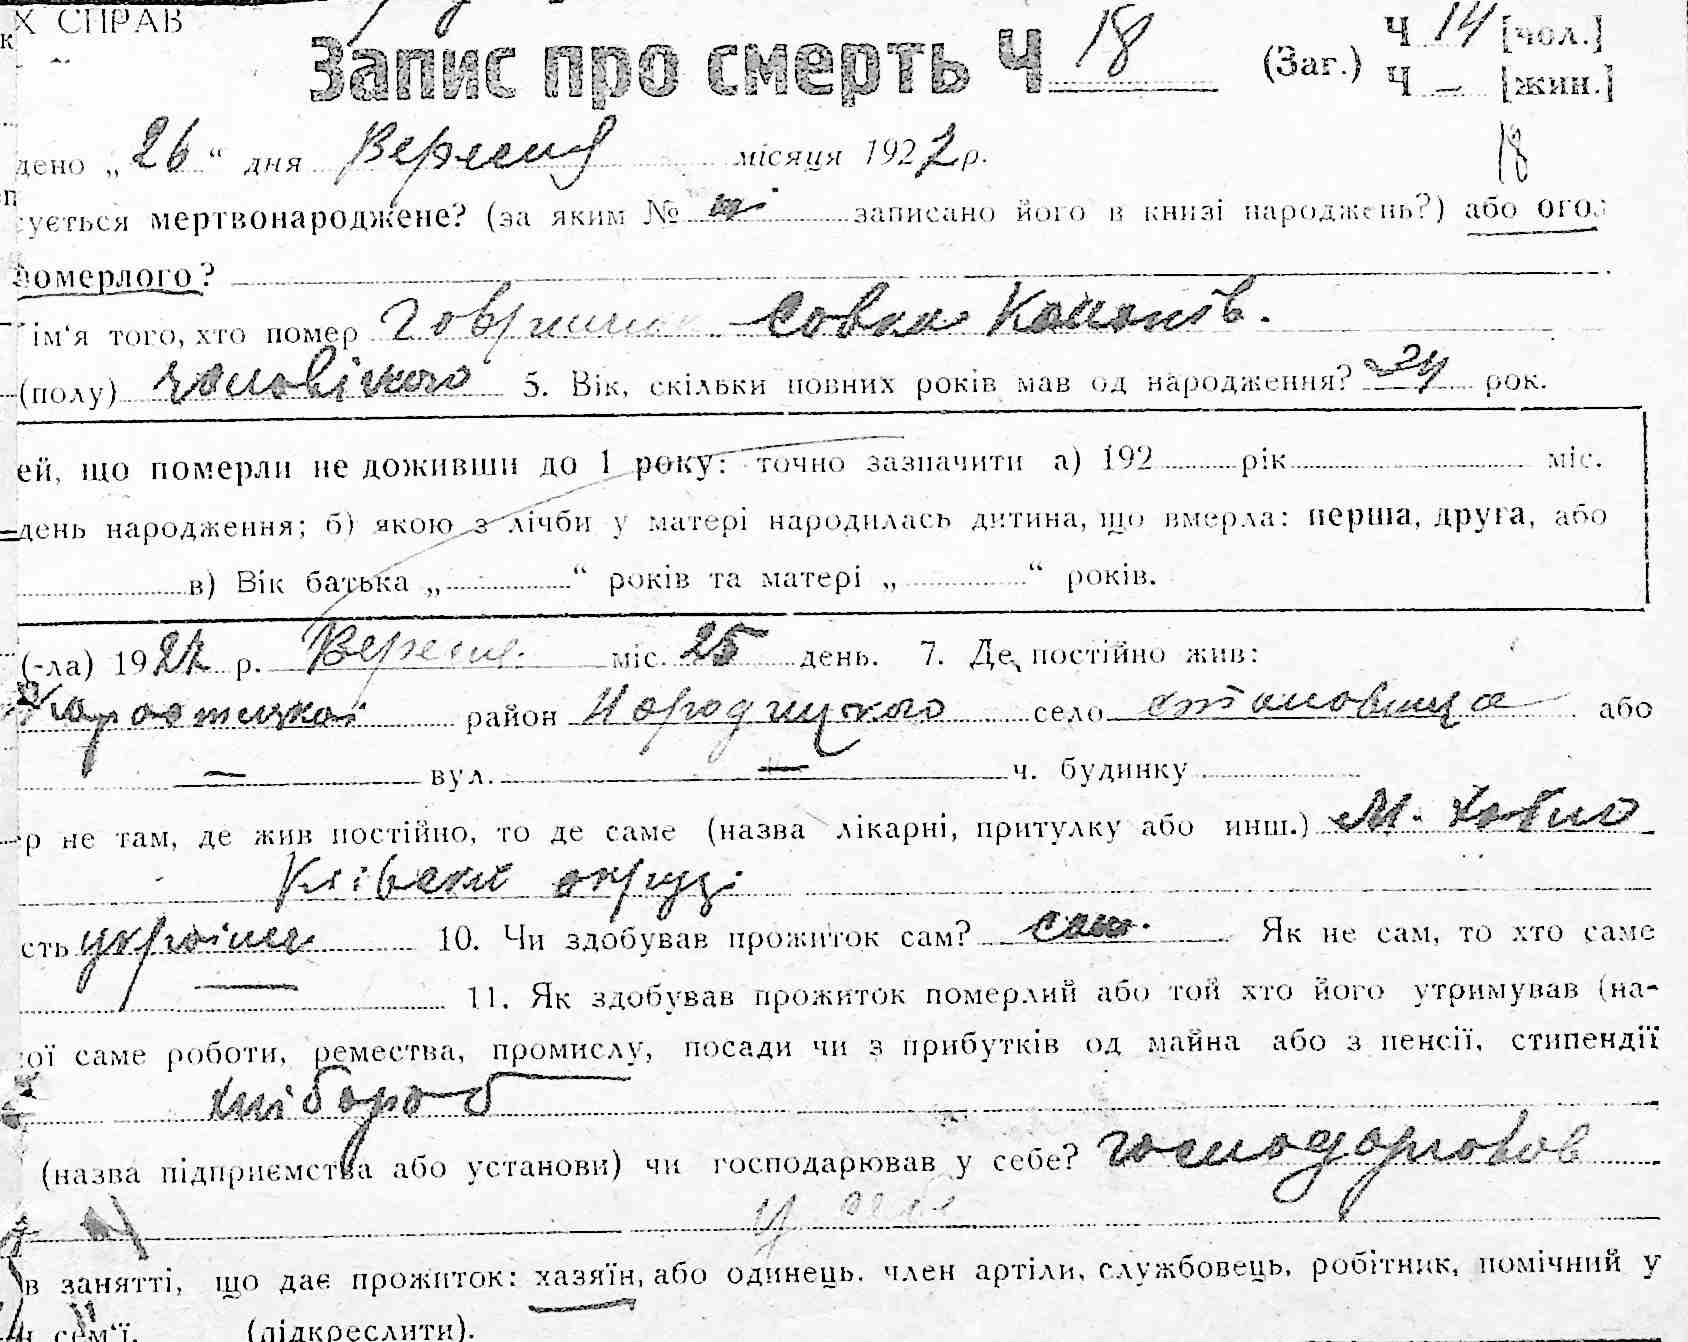 Х СПРАВ
Запис про смерть Ч 18 (Заг.) Ч 14 [чол.]
Ч — [жин.]
дено „26“ дня Вересня місяця 1927 р. 18
ується мертвонароджене? (за яким № записано його в книзі народжень?) або огол
померлого?
ім‘я того, хто помер Савка
(полу) чоловічого 5. Вік, скільки повних років мав од народження? 34 рок.
ей, що померли не доживши до 1 року: точно зазначити а) 192 рік міс.
день народження; б) якою з лічби у матері народилась дитина, що вмерла: перша, друга, або
в) Вік батька „ “ років та матері „ “ років.
(-ла) 1927 р. Вересня міс. 25 день. 7. Де постійно жив:
район Народицького село становище або
— вул. — ч. будинку
ер не там, де жив постійно, то де саме (назва лікарні, притулку або инш.) М. Хабно
Київськ округ
сть україн 10. Чи здобував прожиток сам? сам. Як не сам, то хто саме
— 11. Як здобував прожиток померлий або той хто його утримував (на-
ої саме роботи, ремества, промислу, посади чи з прибутків од майна або з пенсії, стипендії
хлібороб
(назва підприємства або установи) чи господарював у себе? господарював
у себе
в занятті, що дає прожиток: хазяїн, або одинець, член артіли, службовець, робітник, помічний у
сем‘ї. (підкреслити).